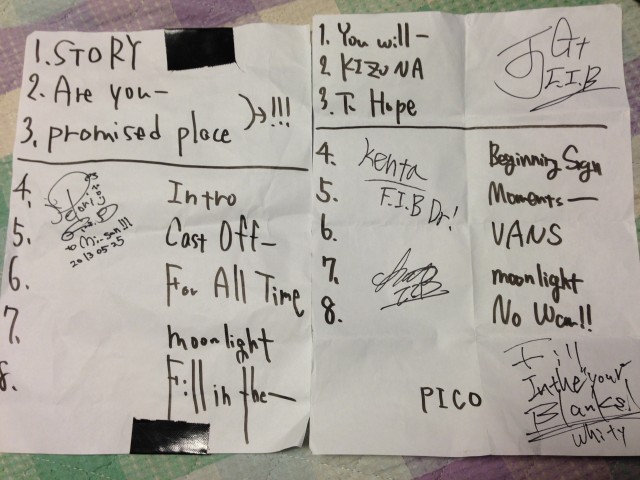 1. STORY
2. Are you-
3. promised place
→ !!!
4. Intro
5. Cast Off-
6. For All Time
7. moonlight
8. Fill in the-
to Mii-San!!!
2013.05.25
1. You will-
2 KIZUNA
3. Hope
Gt
F.I.B
4. Beginning Sign
5. Moments-
6. VANS
7. moonlight
8. No War!!
Kenta
F.I.B Dr!
F.I.B
PICO
Fill
In the "your
Blanks!
Whity